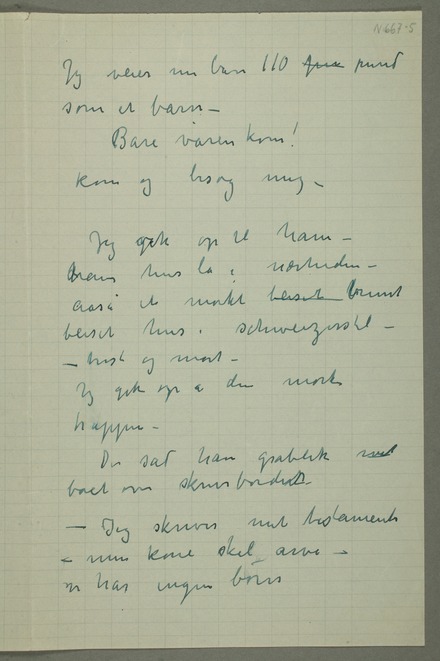 N 667-5
Jeg veier nu bare 110 pund
som et barn –
Bare våren kom!
kom og besøg mig –
Jeg gik op til ham –
hans hus lå i nærheden –
også et mørkt beiset brunt
beiset hus i schweizerstil –
– trist og mørt –
Jeg gik op a den mørke
trappen –
Der sat han gråbleik med
bøiet over skrivebordet
– Jeg skriver mit testamente
– min kone skal arve –
vi har ingen børn